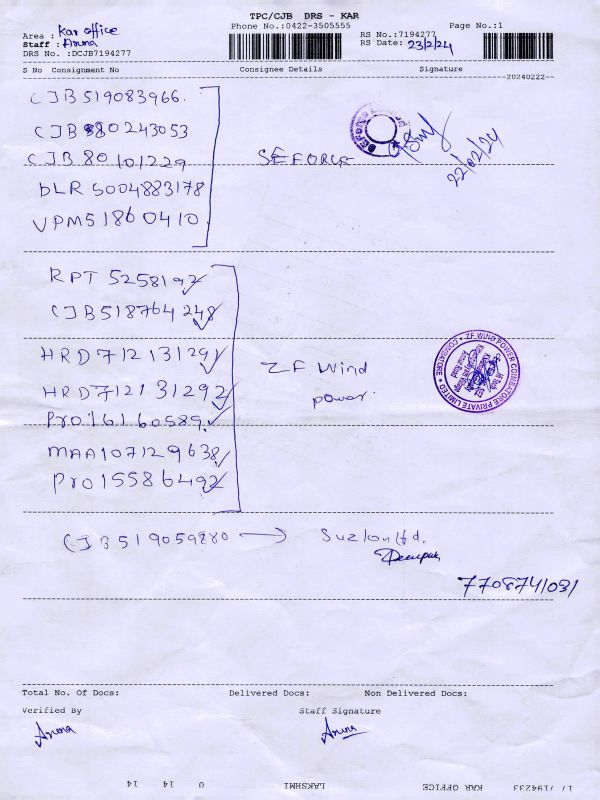 TPC/CJB DRS - KAR
Phone No.:0422-3505555
Page No.:1
Area : Kar office
Staff : Aruna
DRS No. :DCJB7194277
RS No.:7194277
RS Date: 23/2/24
S No Consignment No Consignee Details Signature
20240222
CJB519083966.
CJB 80243053
CJB 80101229
DLR 5004883178
VPM518604 10
SEFORGE
22/02/24
RPT 5258192
CJB518764248
HRD712131291
HRD712131292
PRO16160589
MAA107129638
PRO15586492
ZF Wind
power.
ZF WIND POWER COIMBATORE PRIVATE LIMITED * COIMBATORE *
CJB519059280 → Suzlon ltd.
Deepak
7708741031
Total No. Of Docs: Delivered Docs: Non Delivered Docs:
Verified By Staff Signature
Aruna Aruna
17/7194233 KAR OFFICE LAKSHMI 0 14 14